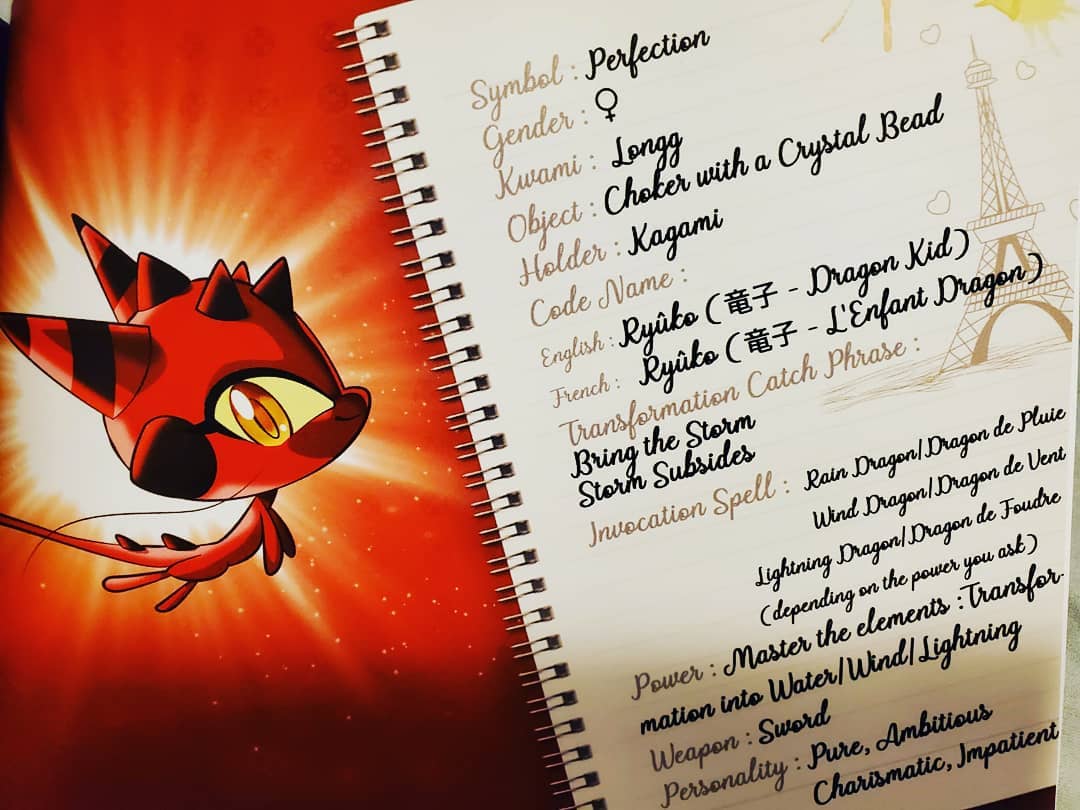 Symbol : Perfection
Gender : ♀
Kwami : Longg
Object : Choker with a Crystal Bead
Holder : Kagami
Code Name :
English : Ryûko (竜子 - Dragon Kid)
French : Ryûko (竜子 - L'Enfant Dragon)
Transformation Catch Phrase :
Bring the Storm
Storm Subsides
Invocation Spell : Rain Dragon/Dragon de Pluie
Wind Dragon/Dragon de Vent
Lightning Dragon/Dragon de Foudre
(depending on the power you ask)
Power : Master the elements :Transfor-
mation into Water/Wind/Lightning
Weapon : Sword
Personality : Pure, Ambitious
Charismatic, Impatient